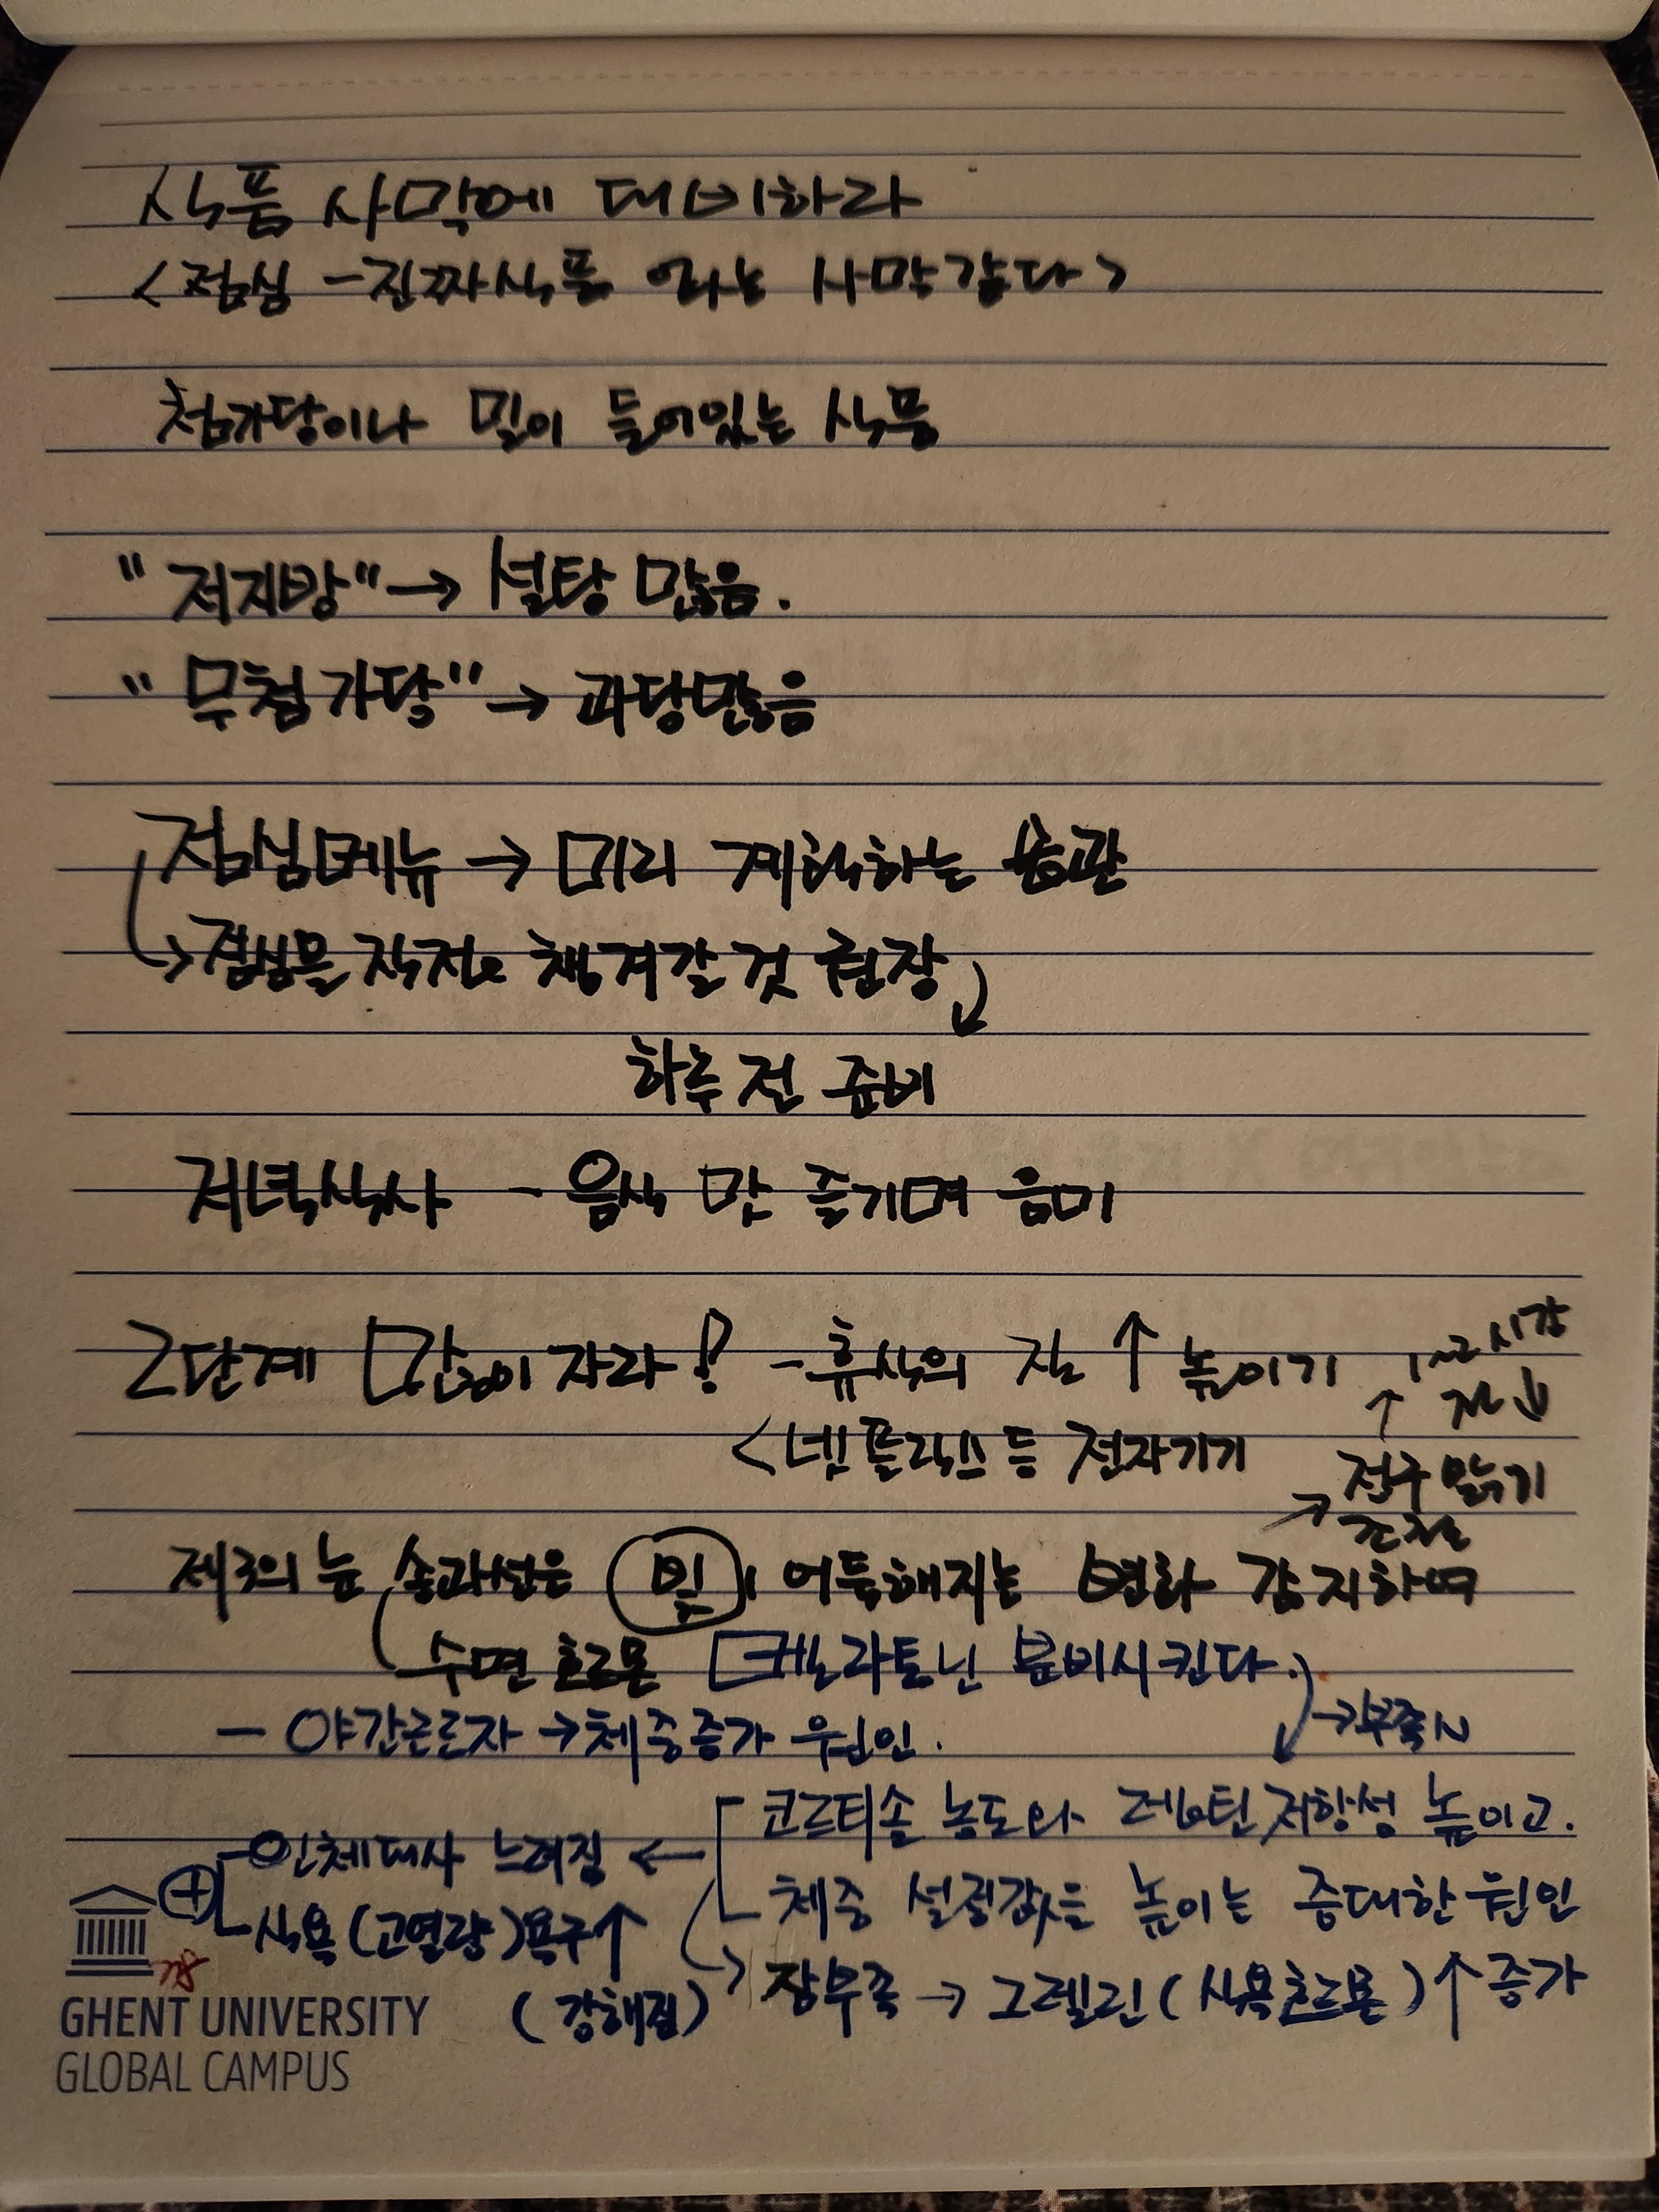 식품 사막에 대비하라
<점심 - 진짜식품 없는 사막같다>
첨가당이나 밀이 들어있는 식품
"저지방" → 설탕 많음.
"무첨가당" → 과당많음
점심메뉴 → 미리 계획하는 습관
→ 점심을 직접 챙겨갈 것 권장
하루 전 준비
저녁식사 - 음식 맛 즐기며 음미
2단계 많이 자라! - 휴식의 질 ↑ 높이기
1~2시간 전 ↓
<넷플릭스 등 전자기기
↑
→ 전구 밝기
조절
제3의 눈 송과선은 빛이 어둑해지는 변화 감지하여
수면 호르몬 멜라토닌 분비시킨다.
- 야간근로자 → 체중증가 원인.
→ 부족시
코르티솔 농도와 렙틴저항성 높이고.
- 인체대사 느려짐 ←
체중 설정값을 높이는 중대한 원인
⊕
식욕(고열량)욕구↑
(강해짐)
잠부족 → 그렐린(식욕호르몬)↑ 증가
78
GHENT UNIVERSITY
GLOBAL CAMPUS